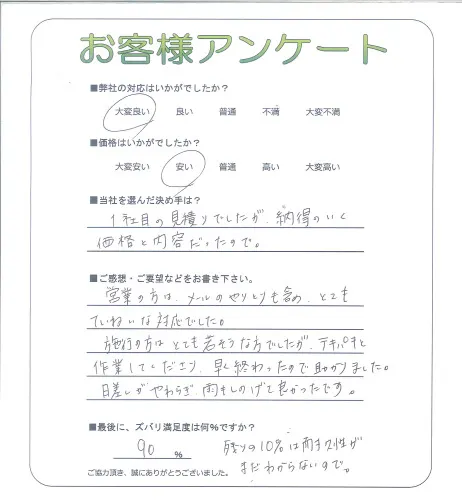 お客様アンケート
■弊社の対応はいかがでしたか？
大変良い 良い 普通 不満 大変不満
■価格はいかがでしたか？
大変安い 安い 普通 高い 大変高い
■当社を選んだ決め手は？
1社目の見積りでしたが、納得のいく
価格と内容だったので。
■ご感想・ご要望などをお書き下さい。
営業の方は、メールのやりとりも含め、とても
ていねいな対応でした。
施行の方はとても若そうな方でしたが、テキパキと
作業してくださり、早く終わったので助かりました。
日差しがやわらぎ、雨もしのげて良かったです。
■最後に、ズバリ満足度は何％ですか？
90 ％
残りの10％は耐久性が
まだわからないので。
ご協力頂き、誠にありがとうございました。